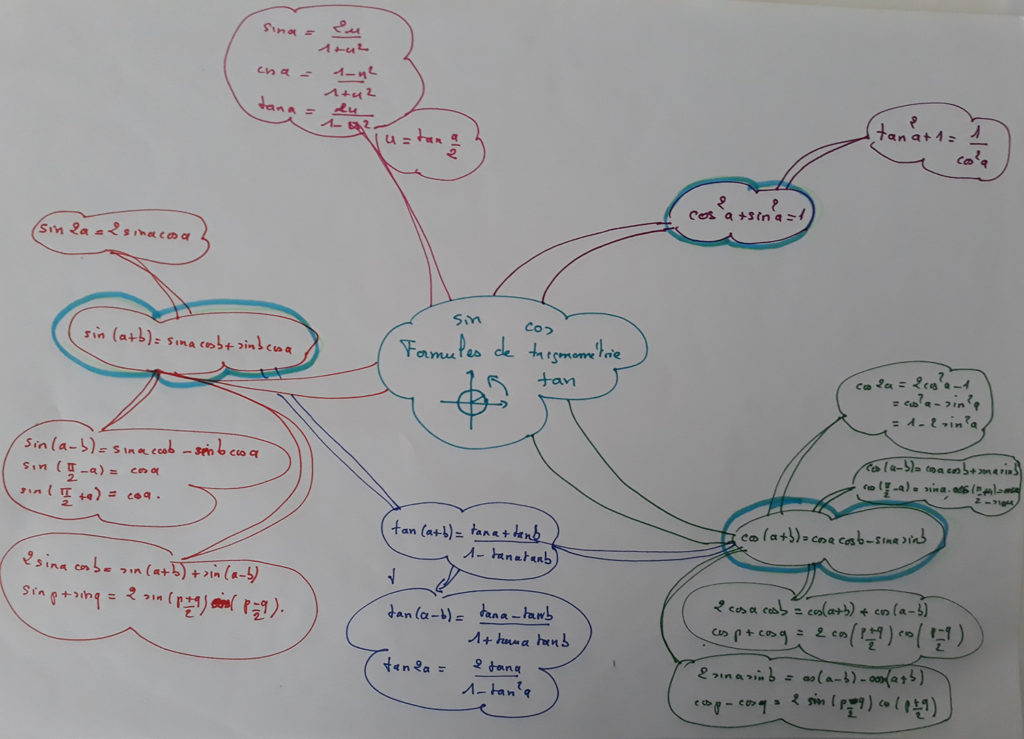 sin a = 2u / 1+u²
cos a = 1-u² / 1+u²
tan a = 2u / 1-u²
u = tan a/2
tan²a + 1 = 1 / cos²a
cos²a + sin²a = 1
sin 2a = 2 sin a cos a
sin (a+b) = sin a cos b + sin b cos a
sin cos
Formules de trigonométrie
tan
sin (a-b) = sin a cos b - sin b cos a
sin (π/2 - a) = cos a
sin (π/2 + a) = cos a.
2 sin a cos b = sin (a+b) + sin (a-b)
sin p + sin q = 2 sin (p+q/2) cos (p-q/2).
tan (a+b) = tan a + tan b / 1 - tan a tan b
tan (a-b) = tan a - tan b / 1 + tan a tan b
tan 2a = 2 tan a / 1 - tan²a
cos 2a = 2 cos²a - 1
= cos²a - sin²a
= 1 - 2 sin²a
cos (a-b) = cos a cos b + sin a sin b
cos (π/2 - a) = sin a.
cos (a+b) = cos a cos b - sin a sin b
2 cos a cos b = cos (a+b) + cos (a-b)
cos p + cos q = 2 cos (p+q/2) cos (p-q/2)
2 sin a sin b = cos (a-b) - cos (a+b)
cos p - cos q = 2 sin (p-q/2) co (p+q/2)